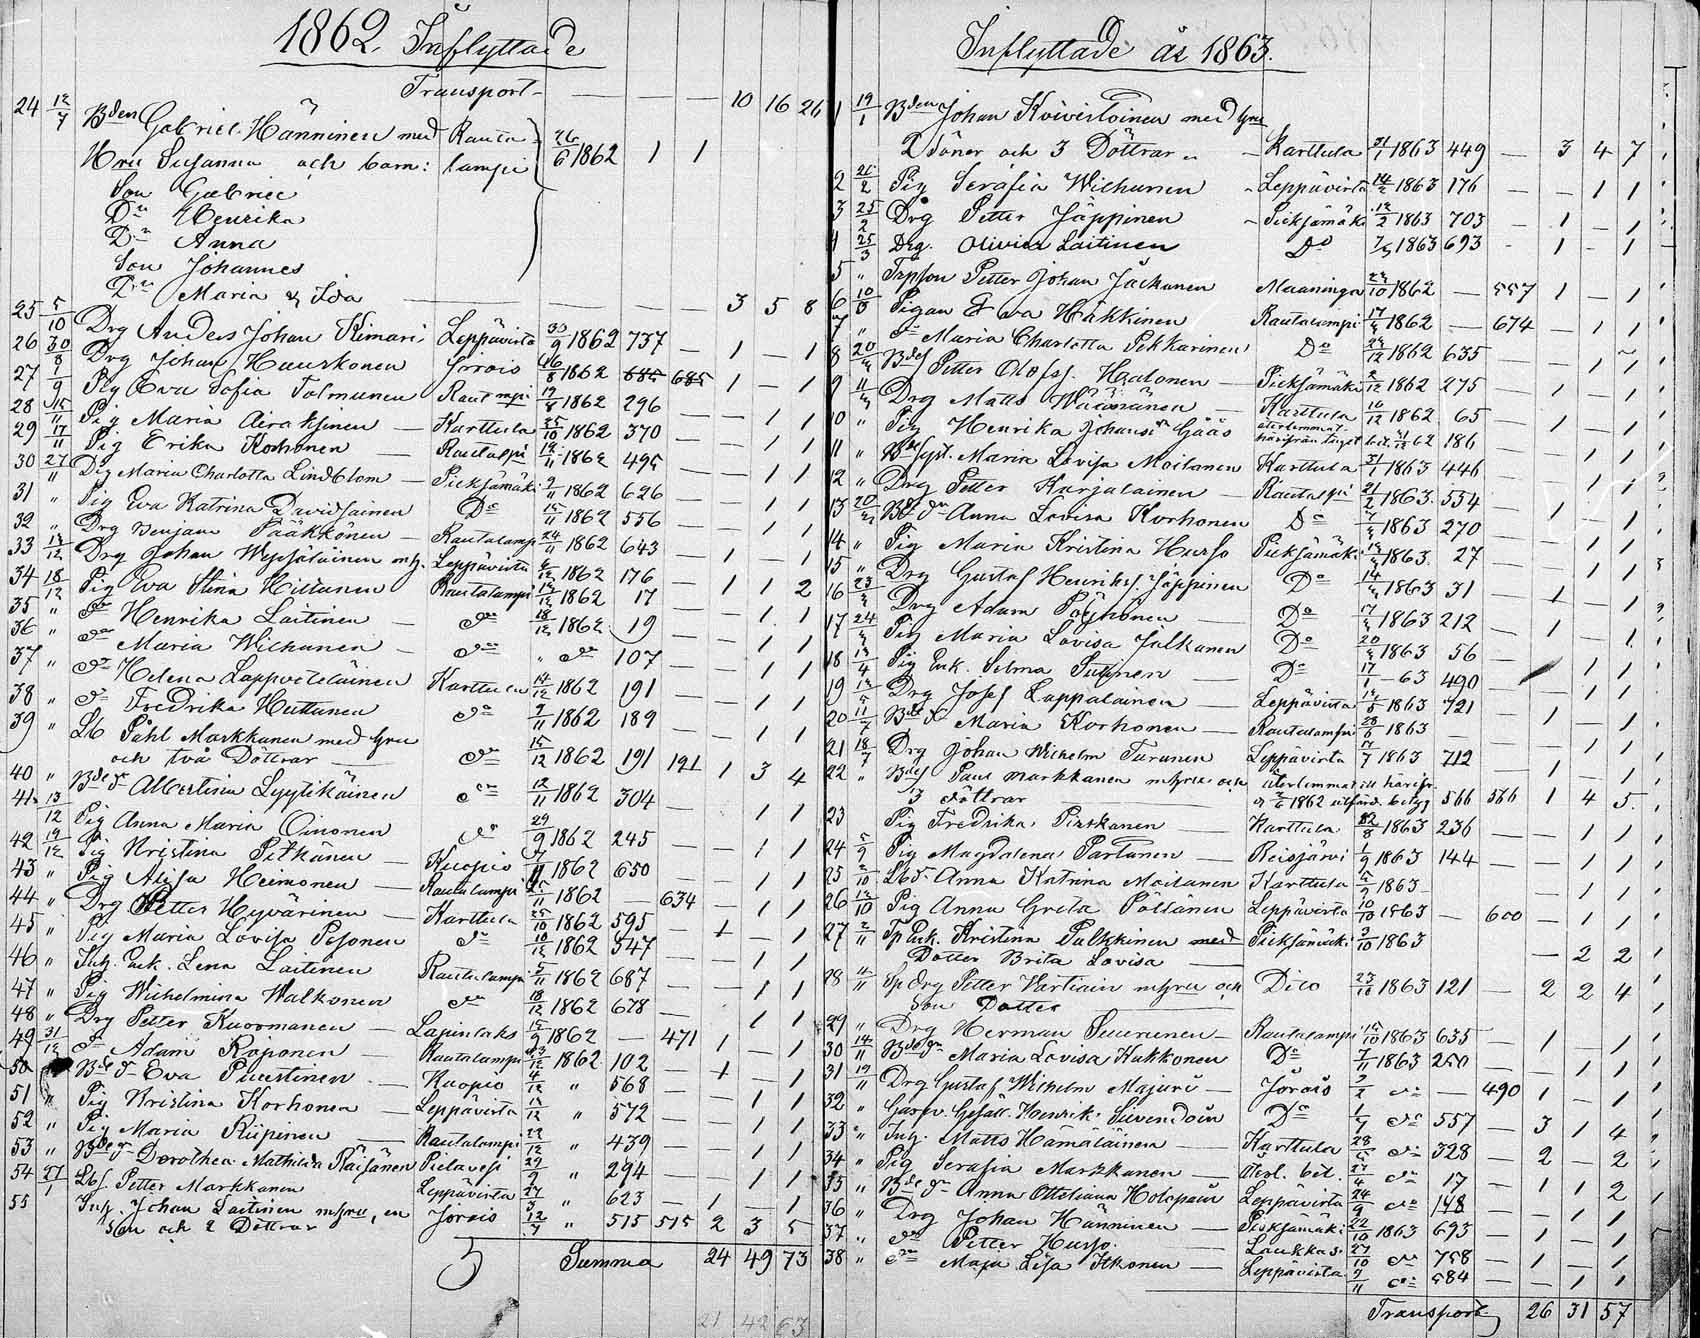 1862. Inflyttade
Transport — — — 10 16 26
24 12/7 Bden Gabriel Hänninen med Rauta- 26/6 1862 1 1
Hru Susanna och barn: lampi
Son Gabriel
Dr Henrika
Dr Anna
Son Johannes
Dr Maria & Ida — — — — 3 5 8
25 5/10 Drg Anders Johan Kimari Leppävirta 30/9 1862 737 — 1 — 1
26 30/8 Drg Johan Hauskonen Jorois 1862 685 685 1 — 1
27 1/9 Pig Eva Sofia Tolmunen Rautmpi 1862 296 — — 1 1
28 15/11 Pig Maria Airaksinen — Karttula 25/10 1862 370 — — 1 1
29 17/11 Pig Erika Korhonen — Rautalpi 1862 495 — — 1 1
30 27/11 Pig Maria Charlotta Lindblom — Pieksämäki 2/11 1862 626 — — 1 1
31 " Pig Eva Katrina Davidsainen Do 15/11 1862 556 — — 1 1
32 " Drg Benjam Pääkkönen — Rautalamp 24/11 1862 643 — 1 — 1
33 Drg Johan Wepsäläinen mh. Leppävirta 1862 176 — 1 1 2
34 18/12 Pig Eva Stina Hiltunen Rautalampi 1862 17 — — 1 1
35 " do Henrika Laitinen — do 18/12 1862 19 — — 1 1
36 " do Maria Wilhunen — do " do 107 — — 1 1
37 " do Helena Lappveteläinen Karttula 14/12 1862 191 — — 1 1
38 " do Fredrika Huttunen do 9/11 1862 189 — — 1 1
39 " Lb Påhl Markkanen med hru
och två Döttrar — do 15/12 1862 191 191 1 3 4
40 " Bde dr Albertina Lyytikäinen do 12/11 1862 304 — — 1 1
41 13/12 Pig Anna Maria Oinonen do 29/9 1862 245 — — 1 1
42 19/12 Pig Kristina Pitkänen — Kuopio 1862 650 — — 1 1
43 " Pig Alisa Heimonen — Rautalampi 1862 — 634 — 1 1
44 " Drg Petter Hyvärinen — Karttula 25/10 1862 595 — 1 — 1
45 " Pig Maria Lovisa Posonen do 10/12 1862 547 — — 1 1
46 " Inh. Enk. Lena Laitinen Rautalampi 5/11 1862 687 — — 1 1
47 " Pig Wilhelmina Walkonen do 18/12 1862 678 — — 1 1
48 " Drg Petter Kuosmanen — Lapinlaks 15/9 1862 — 471 1 — 1
49 31/12 do Adam Roponen — Rautalampi 1862 102 — 1 — 1
50 Bde dr Eva Puustinen — Kuopio 4/12 " 568 — — 1 1
51 " Pig Kristina Korhonen — Leppävirta " 572 — — 1 1
52 " Pig Maria Riipinen — Rautalampi 22/12 " 439 — — 1 1
53 " Bde dr Dorothea Mathilda Räisänen Pielavesi 29/9 " 294 — — 1 1
54 27/1 Lbs. Petter Markkanen Leppävirta " 623 — 1 — 1
55 Inh. Johan Laitinen mhru, en Jorois 12/7 " 515 515 2 3 5
Son och 2 Döttrar
Summa 24 49 73
21 42 63
Inflyttade år 1863.
1 19/1 Bden Johan Koivistoinen med hru
2 Söner och 3 Döttrar — Karttula 1863 449 — 3 4 7
2 Pig Serafia Wilhunen — Leppävirta 14/2 1863 176 — — 1 1
3 25/2 Drg Petter Jäppinen — Pieksämäki 1863 703 — 1 — 1
4 25/3 Drg. Olivier Laitinen Do 1863 693 — 1 — 1
5 " Petter Johan Jäskanen Maaninga 1862 — 557 1 — 1
6 Pigan Eva Häkkinen Rautalampi 1862 — 674 — 1 1
7 " do Maria Charlotta Pekkarinen Do 1862 635 — — 1
8 Bdes Petter Olofss. Halonen — Pieksämäki 1862 275 — 1 — 1
9 Drg Matts Väänänen — Karttula 16/12 1862 65 — 1 — 1
10 " Pig Henrika Johansdr Gåås 62 186 — — 1 1
11 " Maria Lovisa Moilanen Karttula 31/1 1863 446 — — 1 1
12 " Drg Petter Karjalainen — Rautalpi 21/2 1863 554 — 1 — 1
13 Bde dr Anna Lovisa Korhonen Do 1863 270 — — 1 1
14 " Pig Maria Kristina Husso Pieksämäki 1863 27 — — 1 1
15 " Drg Gustaf Henrikss. Jäppinen Do 1863 31 — 1 — 1
16 Drg Adam Pöyhönen — Do 1863 212 — 1 — 1
17 Pig Maria Lovisa Jalkanen Do 1863 56 — — 1 1
18 13/4 Pig Enk. Selma Suhonen — Do 17/1 — 63 490 — 1 1
19 Drg Josef Lappalainen — Leppävirta 1863 721 — 1 — 1
20 Bde dr Maria Korhonen — Rautalampi 28/6 1863 — — — 1 1
21 18/7 Drg Johan Wilhelm Turunen Leppävirta 1863 712 — 1 — 1
22 " Bdes Paul Markkanen mhru och återlemnat
3 Döttrar 1862 566 566 1 4 5
23 Pig Fredrika Pirskanen — Karttula 1863 236 — — 1 1
24 5/9 Pig Magdalena Partanen — Reisjärvi 1/9 1863 144 — — 1 1
25 Anna Katrina Moilanen Karttula 1863 — — 1 1
26 12/10 Pig Anna Greta Pöllänen Leppävirta 10/10 1863 — 600 — 1 1
27 2/11 Enk. Kristina Pulkkinen med Pieksämäki 1863
Dotter Brita Lovisa — — 2 2
28 Drg Petter Vartiain mhru och Dito 23/10 1863 121 — 2 2 4
Son Dotter
29 " Drg Herman Suurunen — Rautalampi 1863 635 — 1 — 1
30 14/11 Bde dr Maria Lovisa Kukkonen Do 7/11 1863 250 — — 1 1
31 19/11 Drg Gustaf Wilhelm Majuri — Jorois do — 490 1 — 1
32 " Garfv. Gesäll. Henrik Do do 557 — 3 1 4
33 " Inh. Matts Hämäläinen Karttula do 328 — 2 — 2
34 " Pig Serafia Markkanen — do 17 — 1 1 2
35 " Bde dr Anna Ottiliana Holopain Leppävirta do 148 — — 1 1
36 " Drg Johan Hänninen — Pieksämäki 22/10 1863 693 — 1 — 1
37 " do Petter Husso — Laukkas 27/10 do 758 — 1 — 1
38 " do Maja Lisa Itkonen — Leppävirta do 584 — — 1 1
Transport 26 31 57